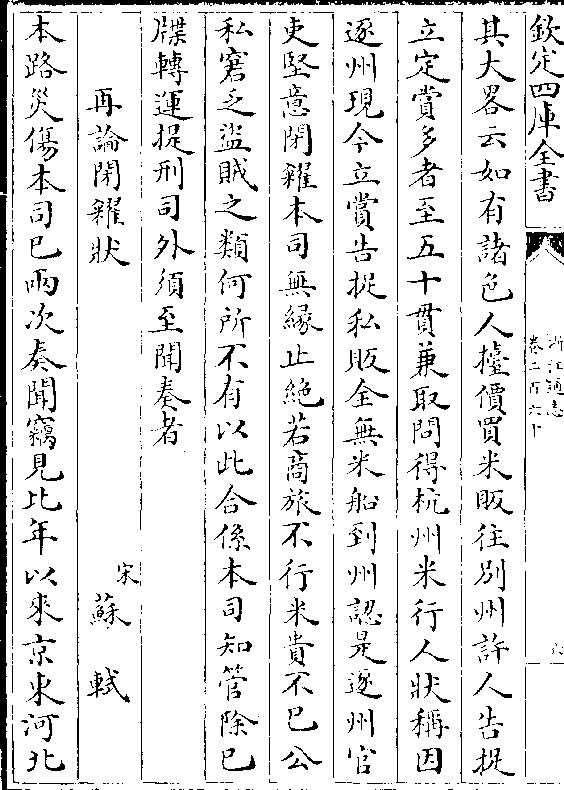 欽定四庫全書
浙江通志
卷二百六十
其大畧云如有諸色人擡價買米販往別州許人告捉
立定賞多者至五十貫兼取問得杭州米行人狀稱因
逐州現今立賞告捉私販全無米船到州認是逐州官
吏堅意閉糴本司無縁止絶若商旅不行米貴不已公
私窘乏盜賊之類何所不有以此合係本司知管除已
牒轉運提刑司外須至聞奏者
再論閉糴狀
宋蘇軾
本路災傷本司已兩次奏聞竊見比年以來京東河北